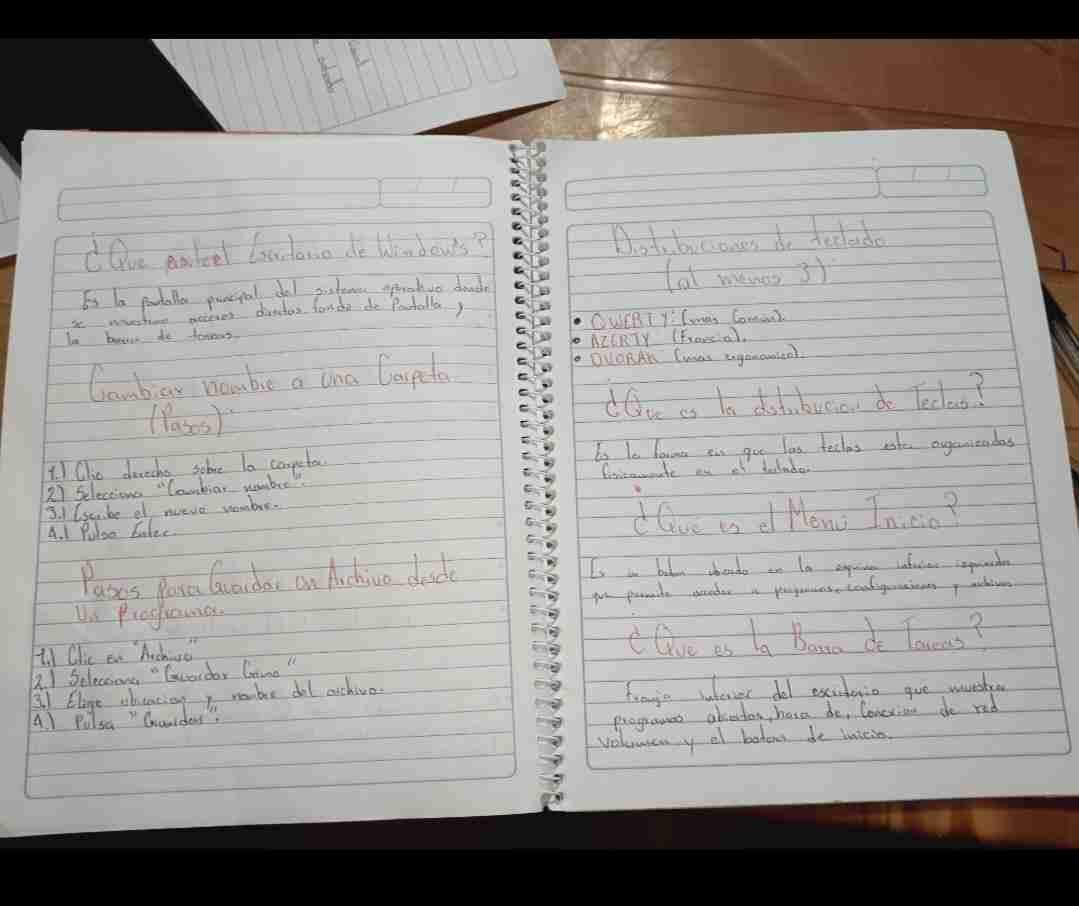 ¿Que es el Escritorio de Windows?
Es la pantalla principal del sistema operativo donde
se muestran accesos directos fondo de Pantalla,
la barra de tareas.
Cambiar nombre a una Carpeta
(Pasos)
1.) Clic derecho sobre la carpeta.
2) Selecciona "Cambiar nombre".
3.) Escribe el nuevo nombre.
4.) Pulsa Enter.
Pasos Para Guardar un Archivo desde
Un Programa.
1.) Clic en "Archivo"
2.) Selecciona "Guardar Como"
3.) Elige ubicacion y nombre del archivo.
4.) Pulsa "Guardar".
Distribuciones de teclado
(al menos 3)
• QWERTY: (mas Comun).
• AZERTY (Francia).
• DVORAK (mas ergonomico).
¿Que es la distribucion de Teclas?
Es la forma en que las teclas esta organizadas
fisicamente en el teclado.
¿Que es el Menú Inicio?
Es un boton ubicado en la esquina inferior izquierda
que permite acceder a programas, configuraciones y archivos
¿Que es la Barra de Tareas?
Franja inferior del escritorio que muestra
programas abiertos, hora de, Conexion de red
volumen y el boton de inicio.